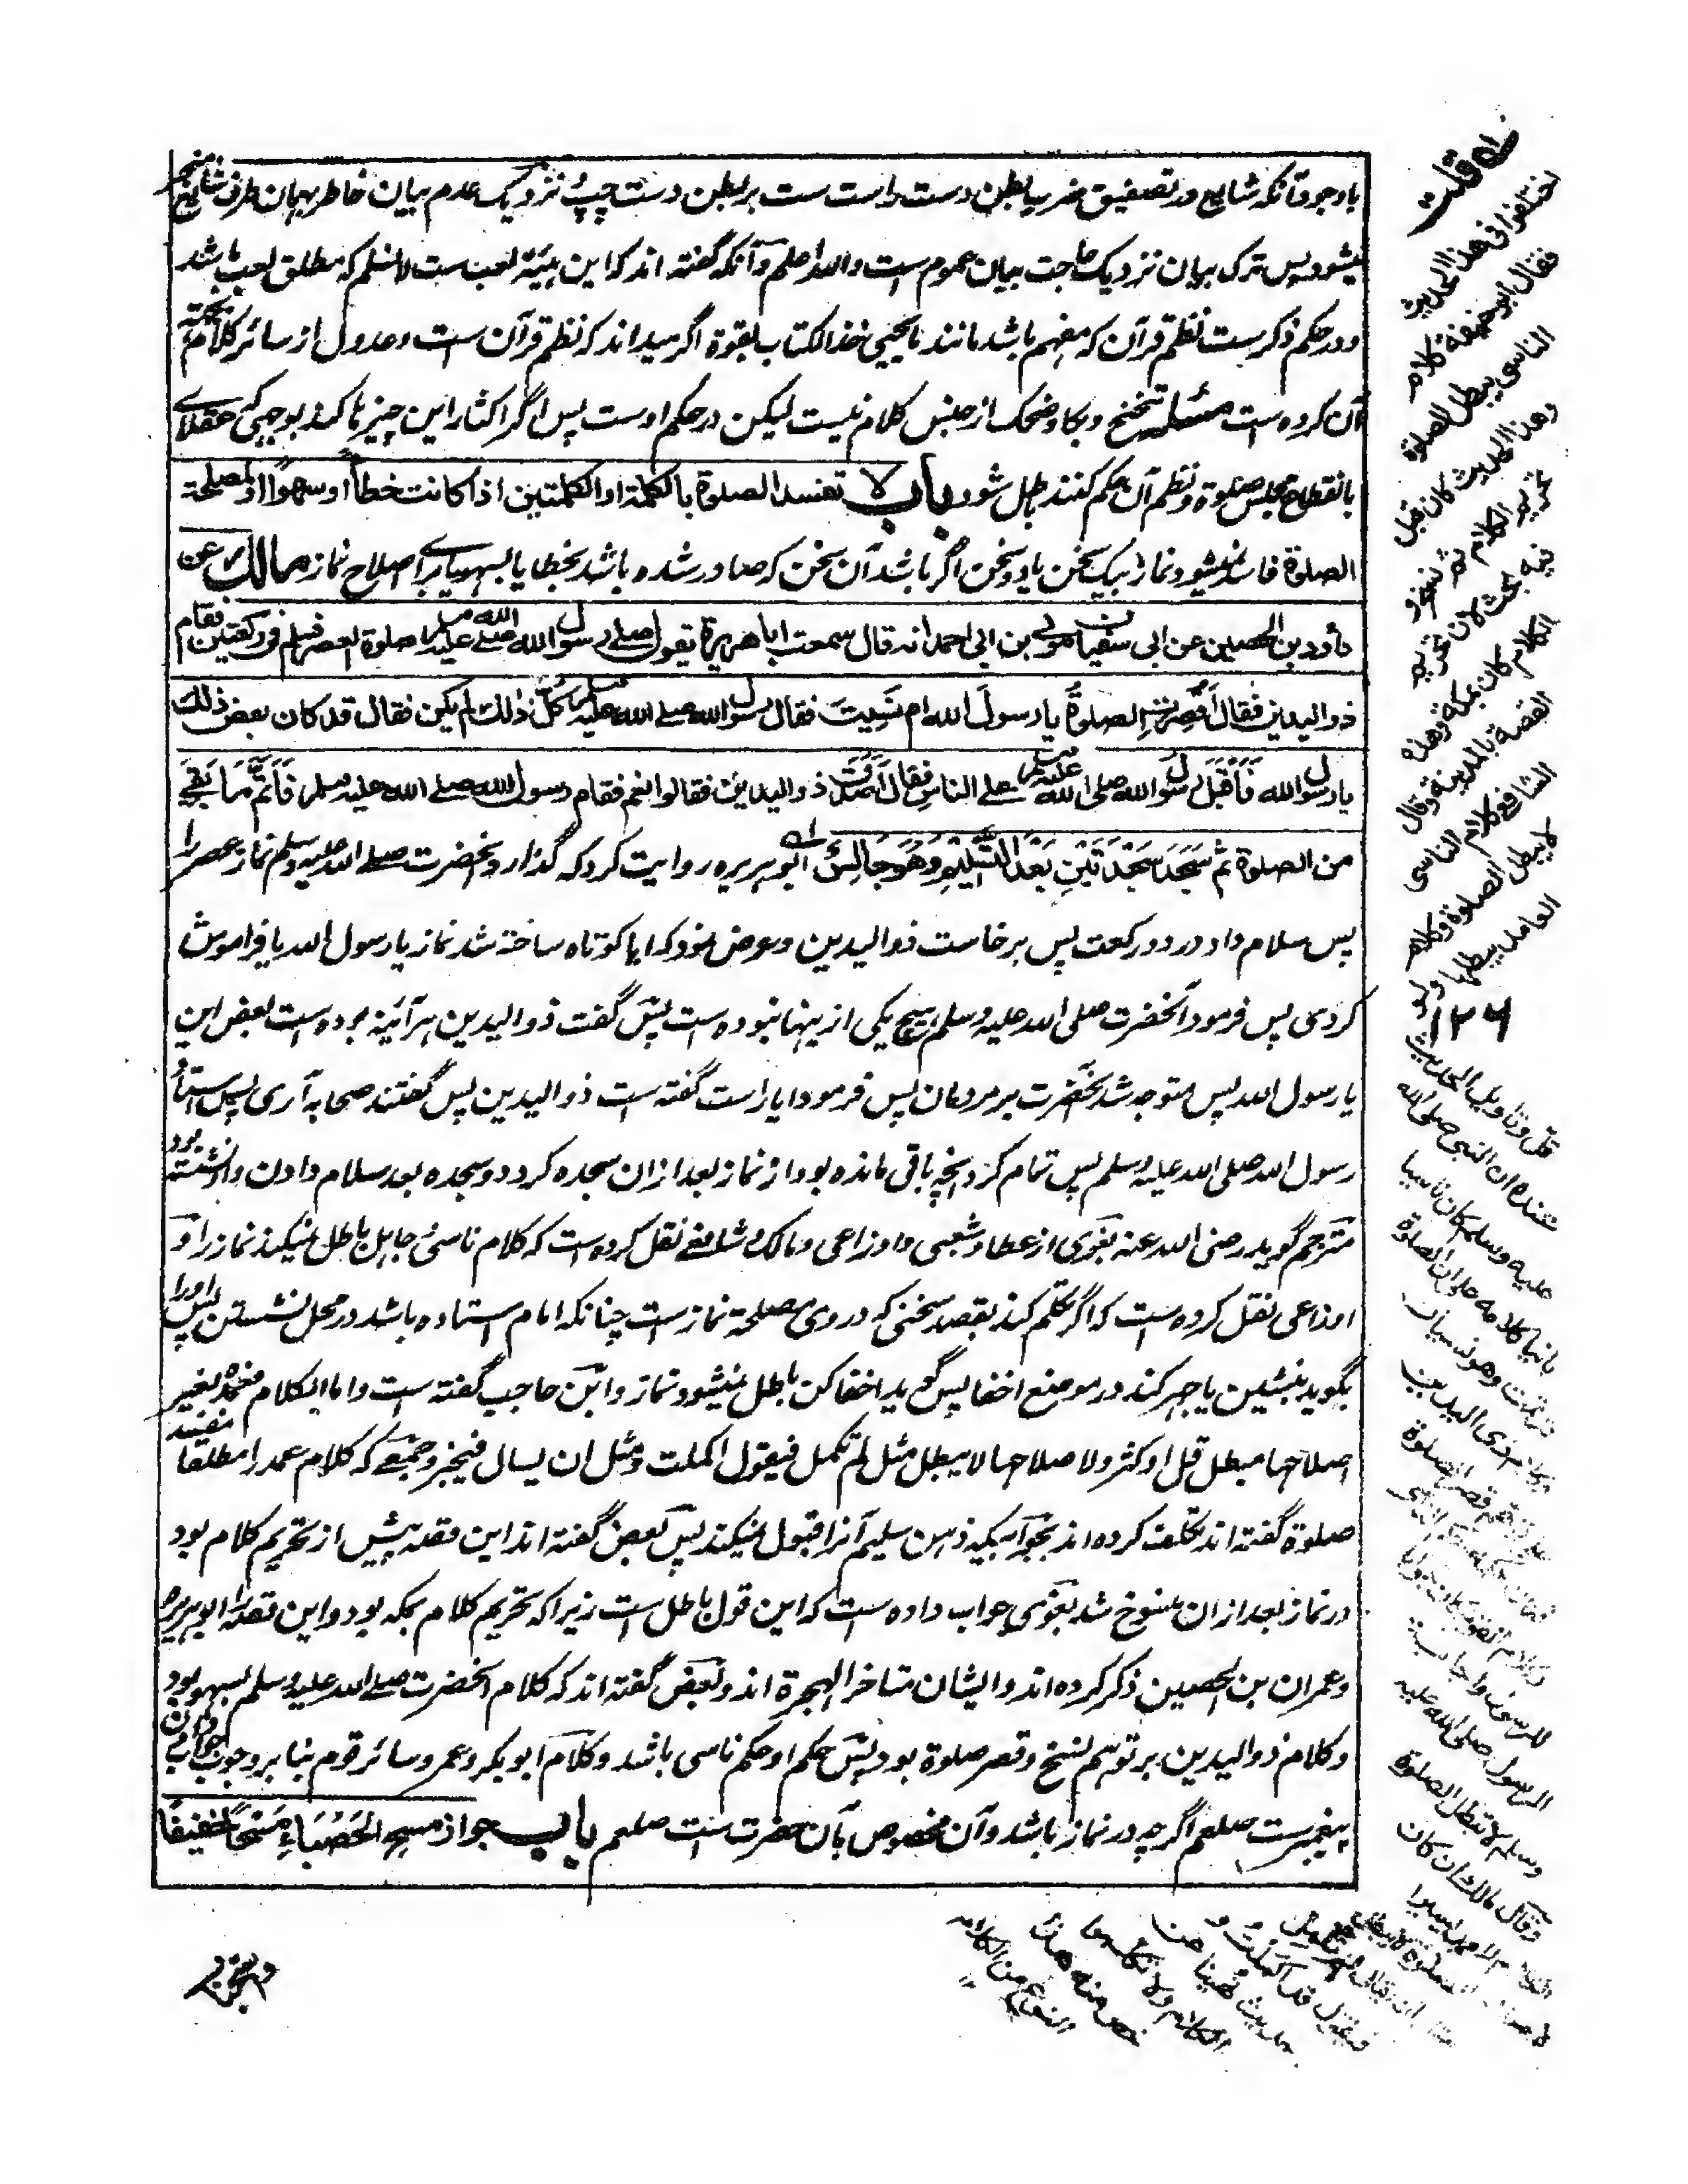 باوجود آنکه شایع در تصفیق ضرب بطن دست راست ست بر بطن دست چپ نزدیک عدم بیان خاطر بهمان طرف
میشود پس ترک بیان نزدیک حاجت بیان عموم است والله اعلم و آنکه گفته اند که این هیئة لعب ست لا نسلم که مطلق لعب باشد
و در حکم ذکرست نظم قرآن که مفهم باشد مانند یا یحیی خذ الکتاب بقوة اگر میداند که نظم قرآن ست و عدول از سائر کلام
آن کرده است مسئله تنحنح و بکا و ضحک از جنس کلام نیست لیکن در حکم اوست پس اگر اکثار این چیزها کند بوجهی که عقلای
بانقطاع مجلس صلوة و نظم آن حکم کنند باطل شود باب لا تفسد الصلوة بالکلمة او الکلمتین اذا کانت خطأ او سهوا او لمصلحة
الصلوة فاسد نمیشود نماز بیک سخن یا دو سخن اگر باشد آن سخن که صادر شده باشد بخطا یا بسهو یا برای اصلاح نماز مالک عن
داود بن الحصین عن ابی سفیان مولی بن ابی احمد انه قال سمعت ابا هریرة یقول صلے رسول الله صلے الله علیه وسلم صلوة العصر فسلم فی رکعتین فقام
ذو الیدین فقال اَقُصِرَتِ الصلوةُ یا رسول الله ام نَسِیتَ فقال رسول الله صلے الله علیه وسلم کُلُّ ذلك لم یکن فقال قد کان بعض ذلك
یا رسول الله فَاَقْبَلَ رسول الله صلی الله علیه وسلم علے الناس فقال اَصَدَقَ ذو الیدین فقالوا نعم فقام رسول الله صلے الله علیه وسلم فَاَتَمَّ مَا بَقِیَ
من الصلوة ثم سَجَدَ سَجْدَتَیْنِ بَعْدَ التَّسْلِیْمِ وَهُوَ جَالِسٌ ابو هریره روایت کرد که گذارد آنحضرت صلے الله علیه وسلم نماز عصر را
پس سلام داد در دو رکعت پس برخاست ذوالیدین و عرض نمود که ایا کوتاه ساخته شد نماز یا رسول الله یا فراموش
کردی پس فرمود آنحضرت صلی الله علیه وسلم هیچ یکی از اینها نبوده است پس گفت ذوالیدین هر آئینه بوده است بعض این
یا رسول الله پس متوجه شد آنحضرت بر مردمان پس فرمود ایا راست گفته است ذوالیدین پس گفتند صحابه آری پس استاد
رسول الله صلی الله علیه وسلم پس تمام کرد آنچه باقی مانده بود از نماز بعد ازان سجده کرد دو سجده بعد سلام دادن و او نشسته بود
مترجم گوید رضی الله عنه بغوی از عطا و شعبی و اوزاعی و مالک و شافعے نقل کرده است که کلام ناسی و جاهل باطل نمیکند نماز را و
اوزاعی نقل کرده ست که اگر تکلم کند بقصد سخنی که در وی مصلحة نمازست چنانکه امام استاده باشد در محل نشستن پس او را
بگوید بنشین یا جهر کند در موضع اخفا پس گوید اخفا کن باطل نمیشود نماز و ابن حاجب گفته ست و اما الکلام عمدا لغیر
اصلاحها مبطل قل او کثر ولا صلاحها لا یبطل مثل لم تکمل فیقول اکملت و مثل ان یسال فیخبر و جمعے که کلام عمد را مطلقا مفسد
صلوة گفته اند تکلف کرده اند بجوابیکه ذهن سلیم آنرا قبول نمیکند پس بعض گفته اند این قصه پیش از تحریم کلام بود
در نماز بعد ازان منسوخ شد بغوی جواب داده ست که این قول باطل ست زیرا که تحریم کلام بمکه بود و این قصه را ابو هریره
و عمران بن الحصین ذکر کرده اند و ایشان متاخر الهجرة اند و بعض گفته اند که کلام آنحضرت صلے الله علیه وسلم بسهو بود
و کلام ذوالیدین بر توهم نسخ و قصر صلوة بود پس حکم او حکم ناسی باشد و کلام ابوبکر و عمر و سائر قوم بنا بر وجوب جواب دادن
پیغمبرست صلعم اگرچه در نماز باشد و آن مخصوص بآن حضرت ست صلعم باب جواز مسح الحَصْبَاءِ مَسْحًا خَفِیفًا
قلت
اختلفوا فی هذا الحدیث
فقال ابو حنیفة کلام
الناسی یبطل الصلوة
وهذا الحدیث کان قبل
تحریم الکلام ثم نسخ و
فیه بحث لان تحریم
الکلام کان بمکة وهذه
القصة بالمدینة وقال
الشافعی کلام الناسی
لا یبطل الصلوة وکلام
العامد یبطلها ولو
۱۲۶
قل وتاویل الحدیث
عنده ان النبی صلی الله
علیه وسلم کان ناسیا
بانیا کلامه علی ان الصلوة
تمت وهو نسیان
ذی الیدین
قصر الصلوة
الرسول صلی الله علیه
وسلم لا تبطل الصلوة
وقال مالک ان کان